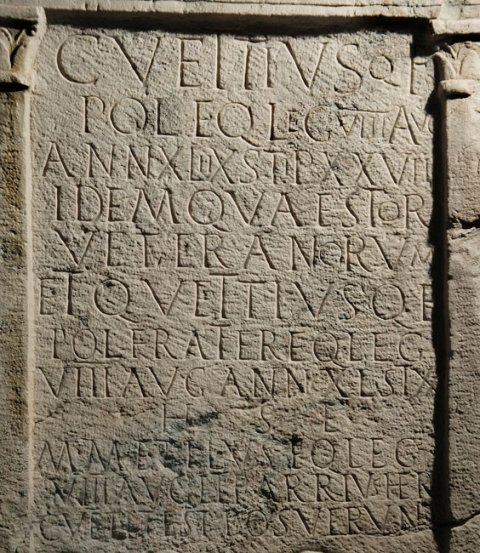 C VETTIVS Q F
POL EQ LEG VIII AV
ANN XLIIX STIP XXVII
IDEM QVAESTOR
VETERANORVM
ET Q VETTIVS Q F
POL FRATER EQ LEG
VIII AVG ANN XL ST IX
H S E
M METILVS EQ LEG
VIII AVG ARRIVS HER
C VETTI POSVERVN